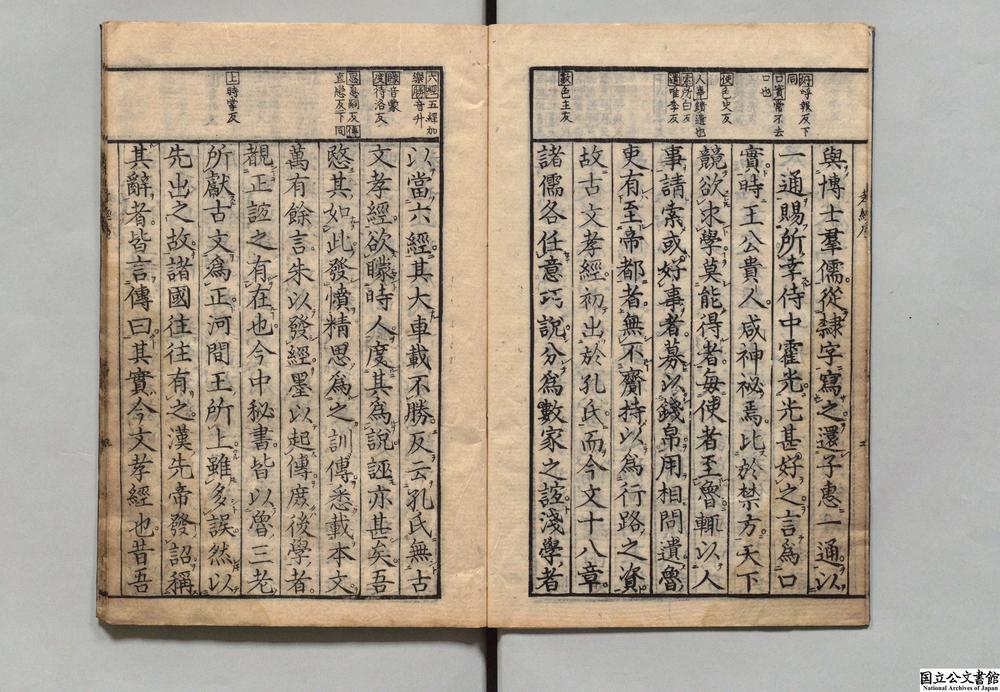 好呼報反下
同
口實常不去
口也
使色吏反
人事饋遺也
索所白反
遺唯季反
數色主反
與博士羣儒從隸字寫之還子惠一通以
一通賜所幸侍中霍光光甚好之言為口
實時王公貴人咸神祕焉比於禁方天下
競欲求學莫能得者每使者至魯輒以人
事請索或好事者募以錢帛用相問遺魯
吏有至帝都者無不齎持以為行路之資
故古文孝經初出於孔氏而今文十八章
諸儒各任意巧說分為數家之誼淺學者
六經五經加
樂勝音升
矇音蒙
度待洛反
思息嗣反傳
直戀反下同
上時掌反
以當六經其大車載不勝反云孔氏無古
文孝經欲矇時人度其為說誣亦甚矣吾
愍其如此發憤精思為之訓傳悉載本文
萬有餘言朱以發經墨以起傳庶後學者
覩正誼之有在也今中秘書皆以魯三老
所獻古文為正河間王所上雖多誤然以
先出之故諸國往往有之漢先帝發詔稱
其辭者皆言傳曰其實今文孝經也昔吾
国立公文書館
National Archives of Japan